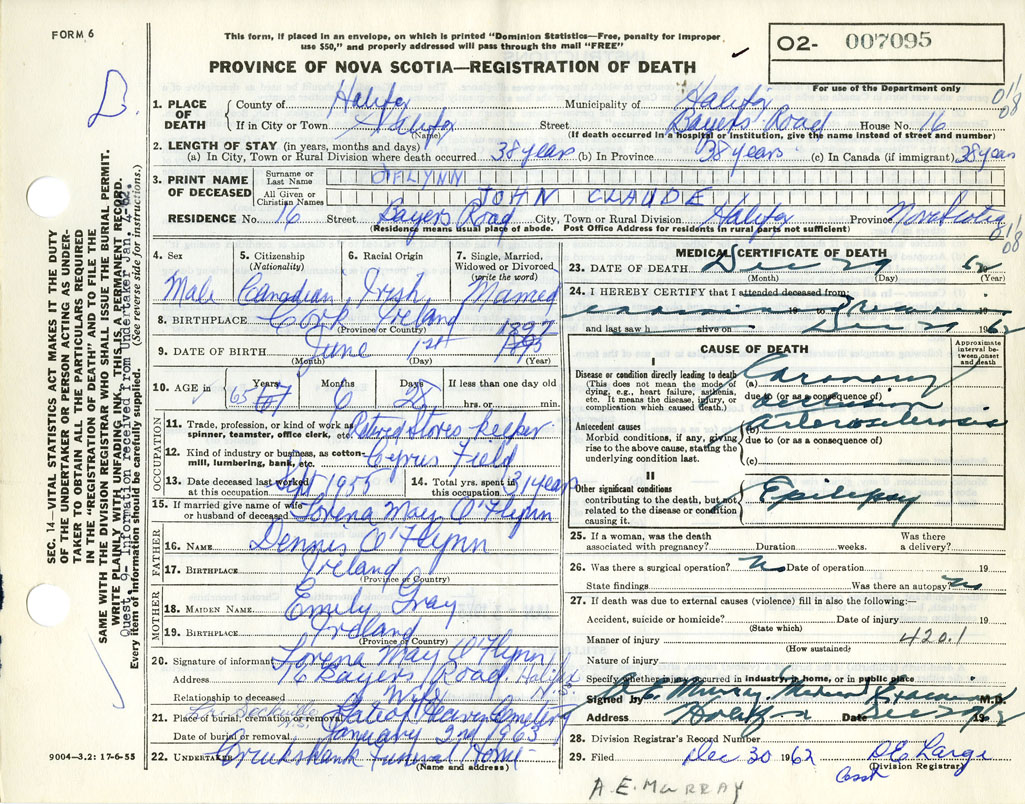 FORM 6
This form, if placed in an envelope, on which is printed "Dominion Statistics—Free, penalty for improper
use $50," and properly addressed will pass through the mail "FREE"
O2- 007095
PROVINCE OF NOVA SCOTIA—REGISTRATION OF DEATH
For use of the Department only
1. PLACE OF DEATH County of Halifax Municipality of Halifax
If in City or Town Halifax Street Bayers Road House No. 16
(Name) (If death occurred in a hospital or institution, give the name instead of street and number)
2. LENGTH OF STAY (in years, months and days)
(a) In City, Town or Rural Division where death occurred 38 years (b) In Province 38 years (c) In Canada (if immigrant) 38 years
3. PRINT NAME OF DECEASED Surname or Last Name O'FLYNN
All Given or Christian Names JOHN CLAUDE
RESIDENCE No. 16 Street Bayers Road City, Town or Rural Division Halifax Province Nova Scotia
(Residence means usual place of abode. Post Office Address for residents in rural parts not sufficient)
4. Sex 5. Citizenship (Nationality) 6. Racial Origin 7. Single, Married, Widowed or Divorced (write the word)
Male Canadian Irish Married
8. BIRTHPLACE Cork Ireland
(Province or Country)
9. DATE OF BIRTH June 1st 1897 1895
(Month) (Day) (Year)
10. AGE in Years 65 67 Months 6 Days 28 If less than one day old
hrs. or min.
OCCUPATION
11. Trade, profession, or kind of work as spinner, teamster, office clerk, etc. Retired Stores keeper
12. Kind of industry or business, as cotton-mill, lumbering, bank, etc. Cyrus Field
13. Date deceased last worked at this occupation Sept 1955 14. Total yrs. spent in this occupation 31 years
15. If married give name of wife or husband of deceased Lorena May O'Flynn
FATHER
16. NAME Dennis O'Flynn
17. BIRTHPLACE Ireland
(Province or Country)
MOTHER
18. MAIDEN NAME Emily Gray
19. BIRTHPLACE Ireland
(Province or Country)
20. Signature of informant Lorena May O'Flynn
Address 16 Bayers Road Halifax N.S.
Relationship to deceased Wife
21. Place of burial, cremation or removal Gate of Heaven Cemetery
Sackville N.S.
Date of burial or removal January 2nd 1963
22. UNDERTAKER Cruikshank Funeral Home
(Name and address)
9004—3.2: 17-6-55
MEDICAL CERTIFICATE OF DEATH
23. DATE OF DEATH Dec 29 62
(Month) (Day) (Year)
24. I HEREBY CERTIFY that I attended deceased from
19 to 19
and last saw h alive on Dec 29 1962
CAUSE OF DEATH
Approximate interval between onset and death
I
Disease or condition directly leading to death (a) Coronary
(This does not mean the mode of dying, e.g., heart failure, asthenia, etc. It means the disease, injury, or complication which caused death.)
due to (or as a consequence of) occlusion
Antecedent causes (b) Arteriosclerosis
Morbid conditions, if any, giving rise to the above cause, stating the underlying condition last.
due to (or as a consequence of)
(c)
II
Other significant conditions Epilepsy
contributing to the death, but not related to the disease or condition causing it.
25. If a woman, was the death associated with pregnancy? Duration weeks. Was there a delivery?
26. Was there a surgical operation? No Date of operation 19
State findings Was there an autopsy? No
27. If death was due to external causes (violence) fill in also the following:—
Accident, suicide or homicide? Date of injury 19
(State which)
Manner of injury 420.1
(How sustained)
Nature of injury
Specify whether injury occurred in industry, in home, or in public place
Signed by A. E. Murray, Medical Examiner M.D.
Address Halifax Date Dec 29 1962
28. Division Registrar's Record Number
29. Filed Dec 30 1962 D E Large
(Division Registrar)
Asst
A.E. MURRAY
SEC. 14—VITAL STATISTICS ACT MAKES IT THE DUTY
OF THE UNDERTAKER OR PERSON ACTING AS UNDER-
TAKER TO OBTAIN ALL THE PARTICULARS REQUIRED
IN THE "REGISTRATION OF DEATH" AND TO FILE THE
SAME WITH THE DIVISION REGISTRAR WHO SHALL ISSUE THE BURIAL PERMIT.
WRITE PLAINLY WITH UNFADING INK. THIS IS A PERMANENT RECORD.
Quest. 9- Information received from undertaker Jan.
Every item of information should be carefully supplied. (See reverse side for instructions.)